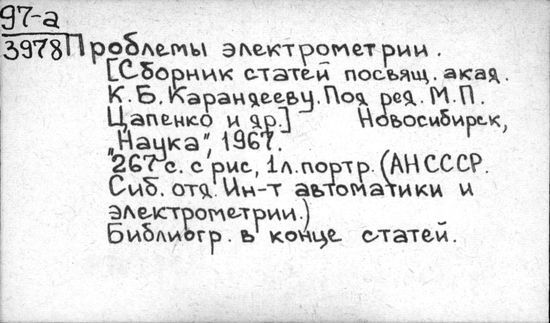 97-а
3978
Проблемы электрометрии.
[Сборник статей посвящ. акад.
К.Б. Карандееву. Под ред. М.П.
Цапенко и др.] Новосибирск,
„Наука", 1967.
267 с. с рис, 1 л. портр. (АН СССР.
Сиб. отд. Ин-т автоматики и
электрометрии.)
Библиогр. в конце статей.